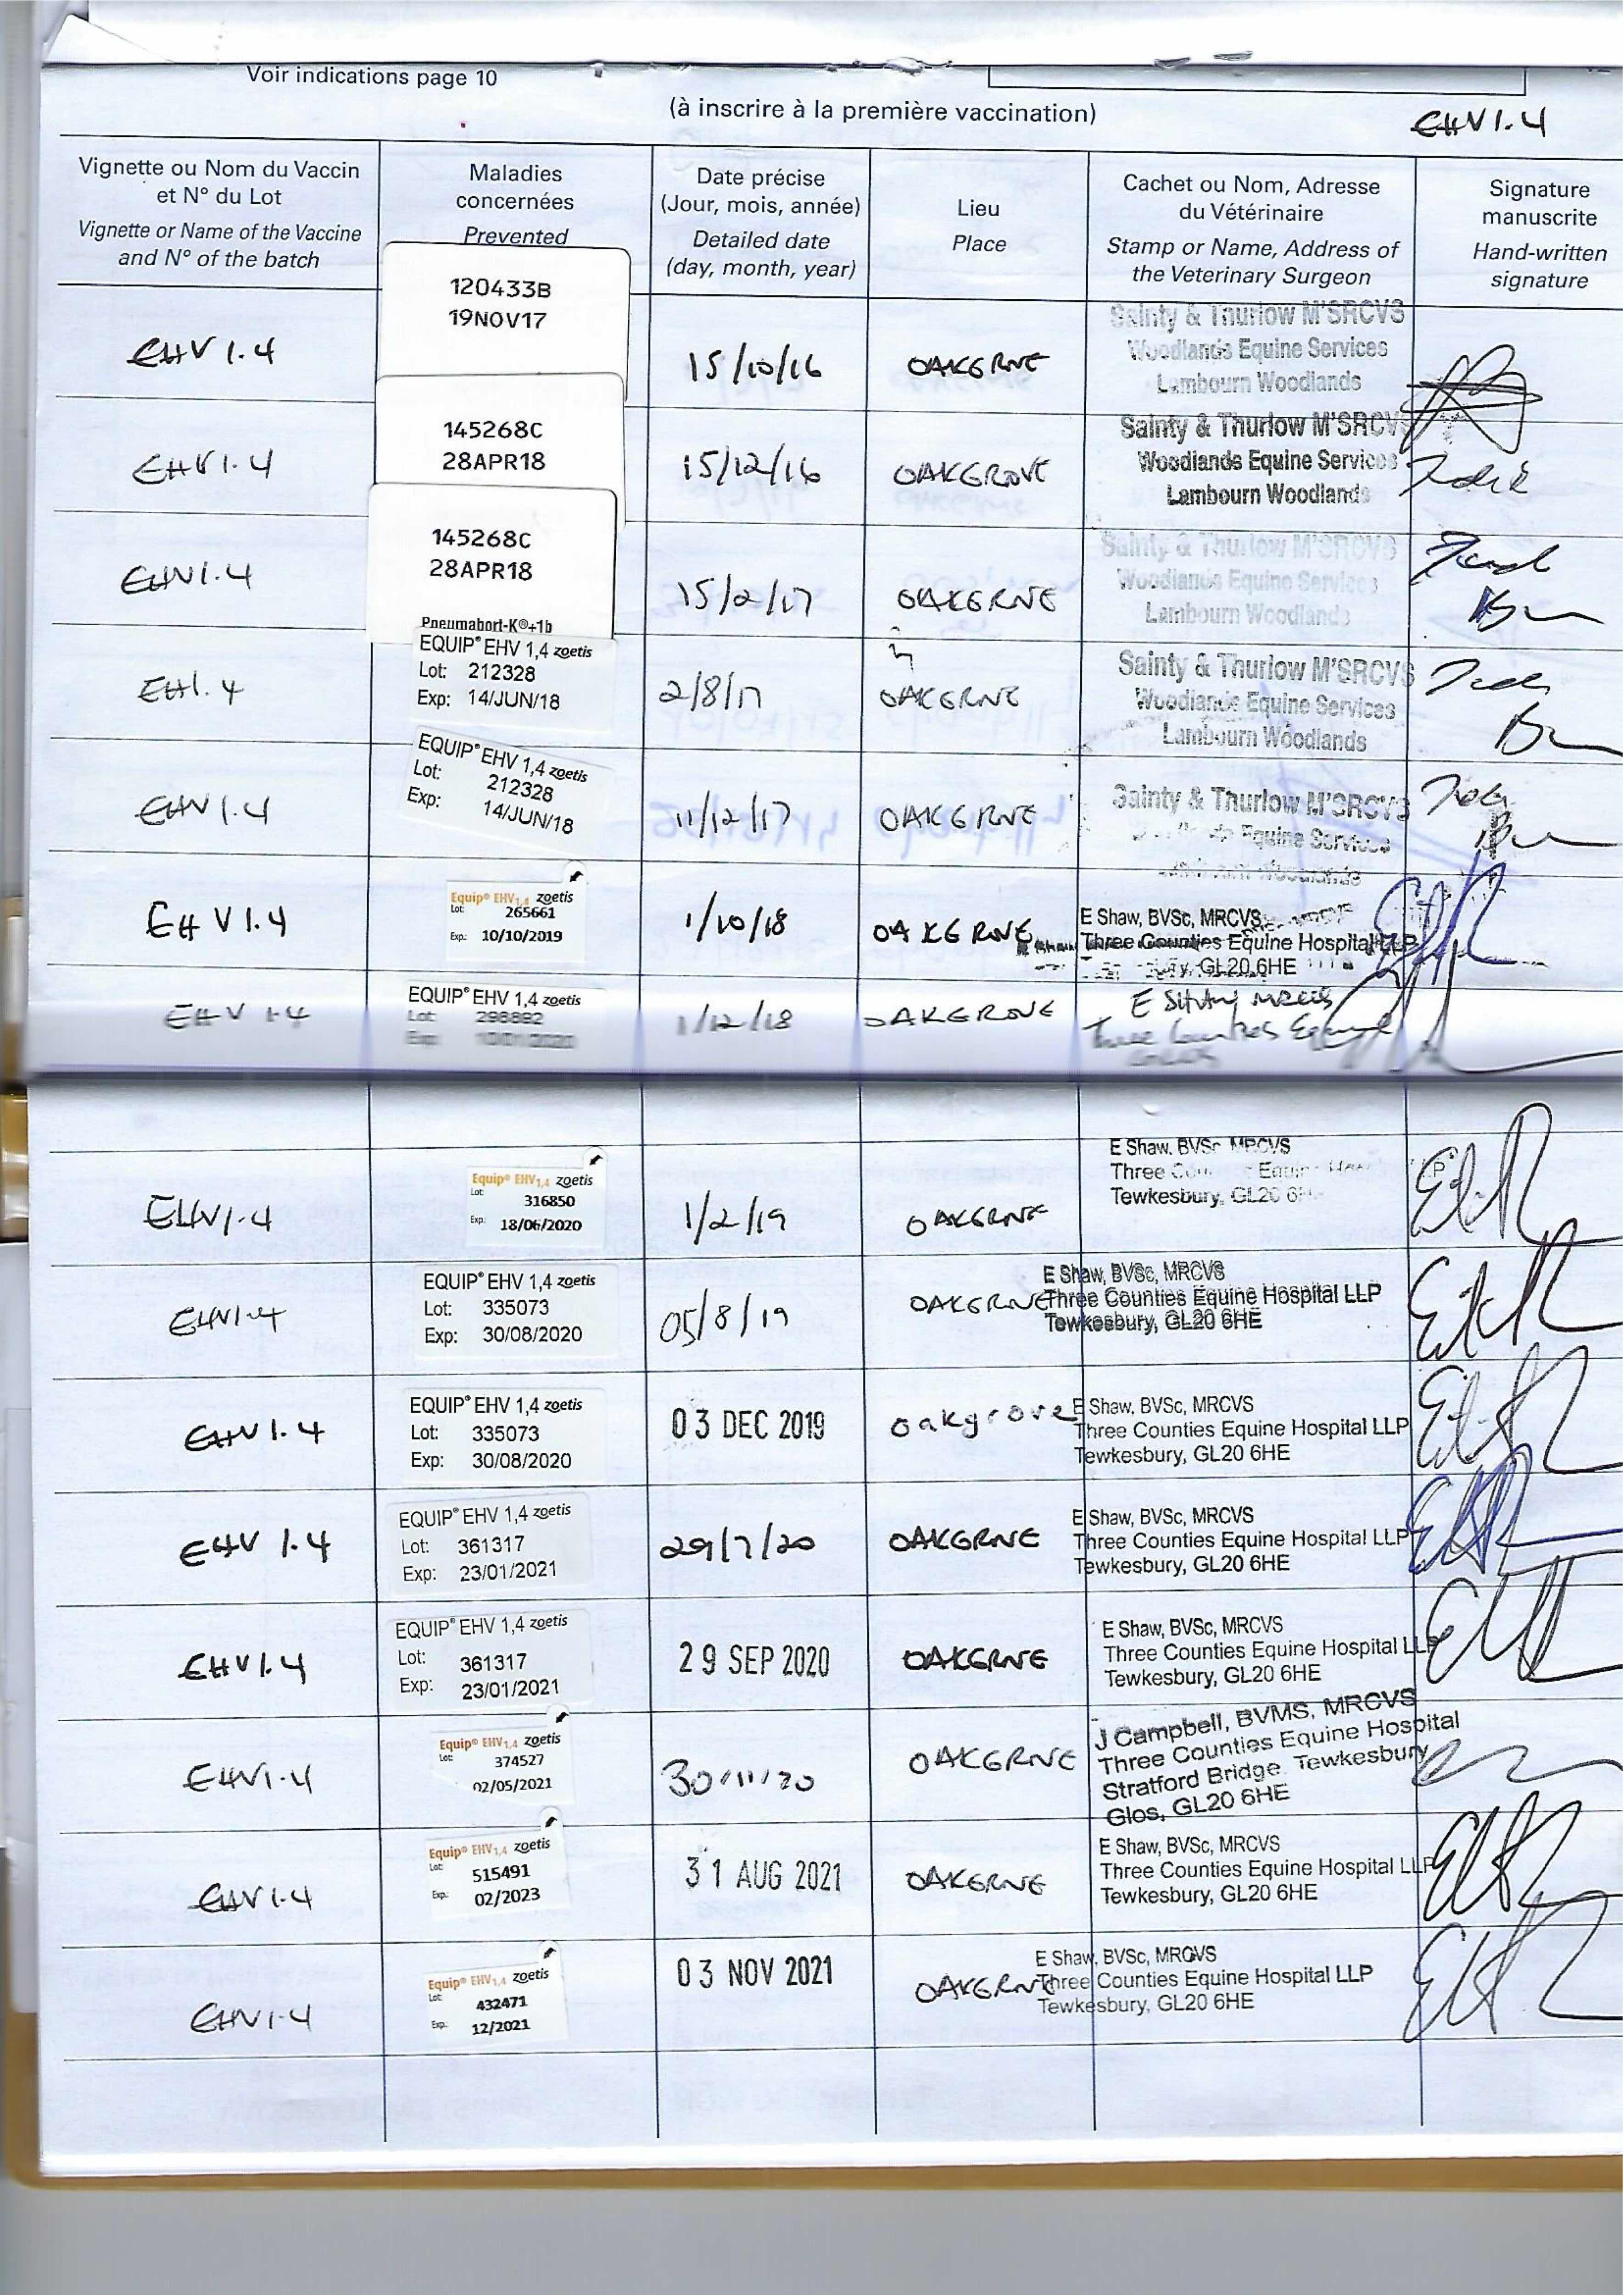 Voir indications page 10
(à inscrire à la première vaccination)
EHV1.4
Vignette ou Nom du Vaccin
et N° du Lot
Vignette or Name of the Vaccine
and N° of the batch
Maladies
concernées
Prevented
Date précise
(Jour, mois, année)
Detailed date
(day, month, year)
Lieu
Place
Cachet ou Nom, Adresse
du Vétérinaire
Stamp or Name, Address of
the Veterinary Surgeon
Signature
manuscrite
Hand-written
signature
EHV 1.4
120433B
19NOV17
15/10/16
OAKGROVE
Sainty & Thurlow M'SRCVS
Woodlands Equine Services
Lambourn Woodlands
EHV1.4
145268C
28APR18
15/12/16
OAKGROVE
Sainty & Thurlow M'SRCVS
Woodlands Equine Services
Lambourn Woodlands
EHV1.4
145268C
28APR18
Pneumabort-K®+1b
15/2/17
OAKGROVE
Sainty & Thurlow M'SRCVS
Woodlands Equine Services
Lambourn Woodlands
EH1.4
EQUIP® EHV 1,4 zoetis
Lot: 212328
Exp: 14/JUN/18
2/8/17
OAKGROVE
Sainty & Thurlow M'SRCVS
Woodlands Equine Services
Lambourn Woodlands
EHV1.4
EQUIP® EHV 1,4 zoetis
Lot: 212328
Exp: 14/JUN/18
11/12/17
OAKGROVE
Sainty & Thurlow M'SRCVS
Equine Services
EHV1.4
Equip® EHV1,4 zoetis
Lot: 265661
Exp.: 10/10/2019
1/10/18
OAKGROVE
E Shaw, BVSc, MRCVS
Three Counties Equine Hospital LLP
GL20 6HE
EHV 1.4
EQUIP® EHV 1,4 zoetis
Lot: 298882
Exp: 10/01/2020
1/12/18
OAKGROVE
E Shaw MRCVS
Three Counties Equine
EHV1.4
Equip® EHV1,4 zoetis
Lot: 316850
Exp.: 18/06/2020
1/2/19
OAKGROVE
E Shaw, BVSc MRCVS
Three
Tewkesbury, GL20
EHV1.4
EQUIP® EHV 1,4 zoetis
Lot: 335073
Exp: 30/08/2020
05/8/19
OAKGROVE
E Shaw, BVSc, MRCVS
Three Counties Equine Hospital LLP
Tewkesbury, GL20 6HE
EHV1.4
EQUIP® EHV 1,4 zoetis
Lot: 335073
Exp: 30/08/2020
03 DEC 2019
oakgrove
E Shaw, BVSc, MRCVS
Three Counties Equine Hospital LLP
Tewkesbury, GL20 6HE
EHV 1.4
EQUIP® EHV 1,4 zoetis
Lot: 361317
Exp: 23/01/2021
29/7/20
OAKGROVE
E Shaw, BVSc, MRCVS
Three Counties Equine Hospital LLP
Tewkesbury, GL20 6HE
EHV1.4
EQUIP® EHV 1,4 zoetis
Lot: 361317
Exp: 23/01/2021
29 SEP 2020
OAKGROVE
E Shaw, BVSc, MRCVS
Three Counties Equine Hospital LLP
Tewkesbury, GL20 6HE
EHV1.4
Equip® EHV1,4 zoetis
Lot: 374527
02/05/2021
30/11/20
OAKGROVE
J Campbell, BVMS, MRCVS
Three Counties Equine Hospital
Stratford Bridge Tewkesbury
Glos, GL20 6HE
EHV1.4
Equip® EHV1,4 zoetis
Lot: 515491
Exp.: 02/2023
31 AUG 2021
OAKGROVE
E Shaw, BVSc, MRCVS
Three Counties Equine Hospital LLP
Tewkesbury, GL20 6HE
EHV1.4
Equip® EHV1,4 zoetis
Lot: 432471
Exp.: 12/2021
03 NOV 2021
OAKGROVE
E Shaw, BVSc, MRCVS
Three Counties Equine Hospital LLP
Tewkesbury, GL20 6HE